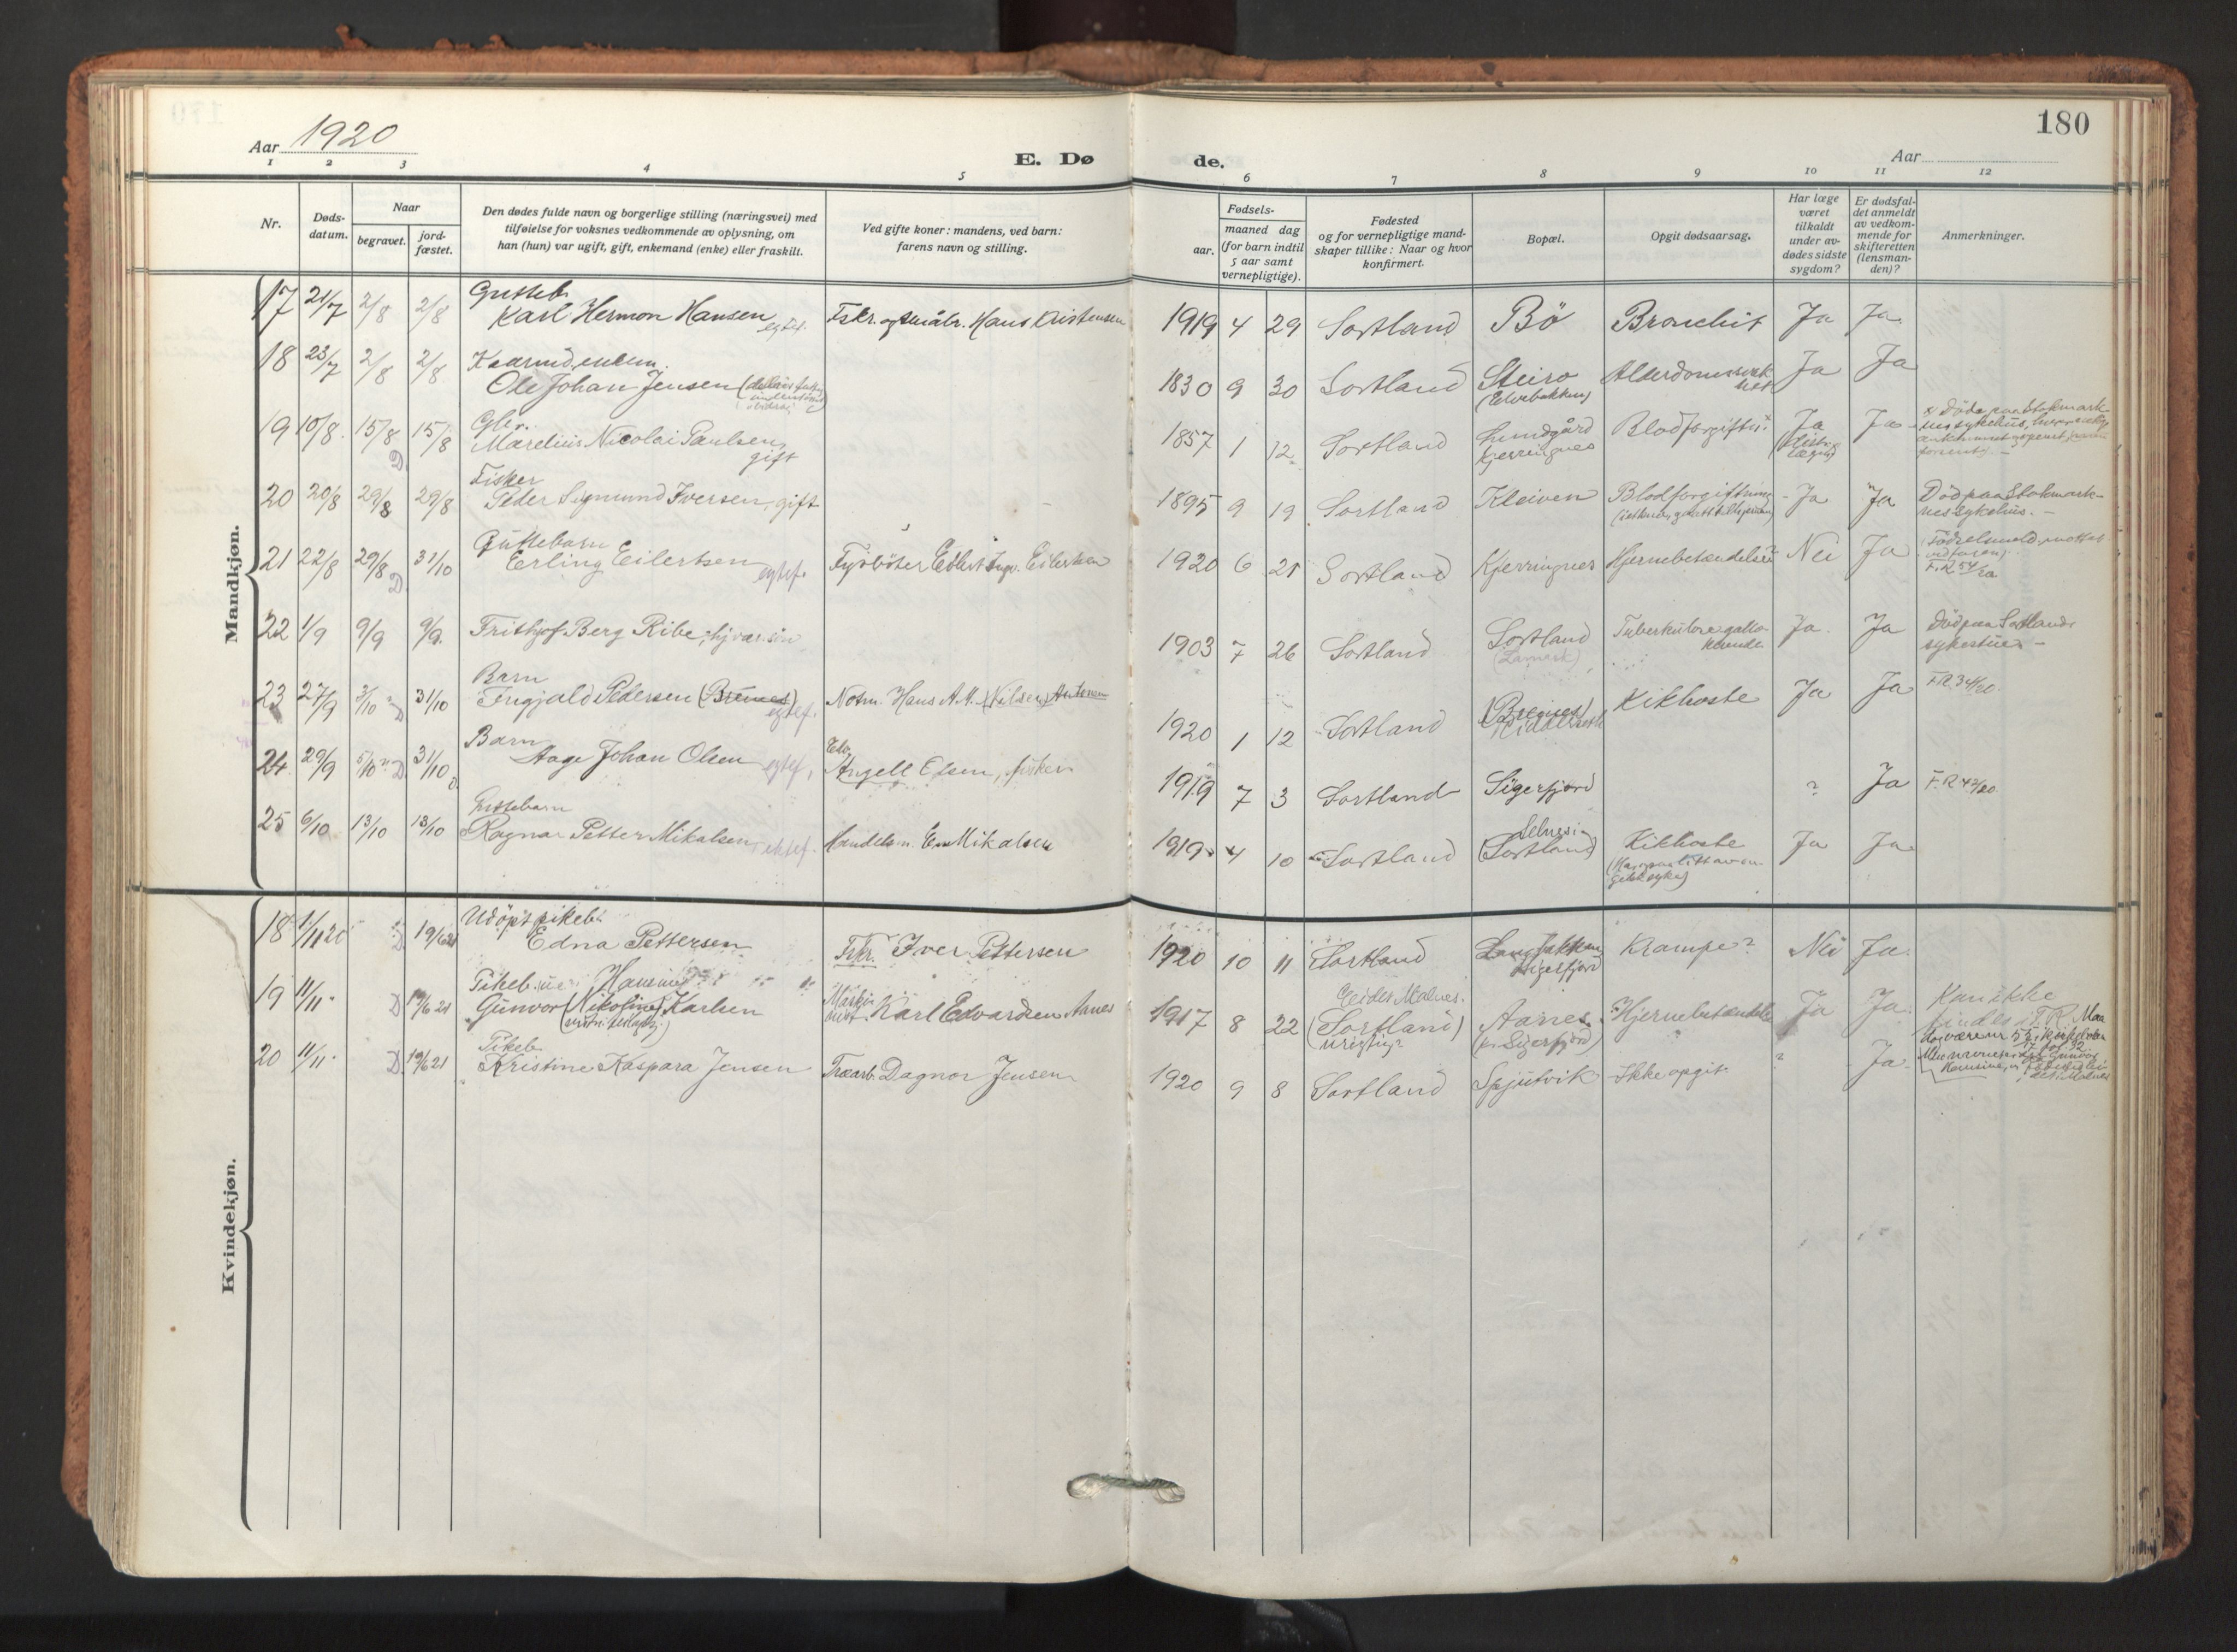 180
Aar 1920
E. Dø
de.
Aar
1 2 3 4 5 6 7 8 9 10 11 12
Nr.
Døds-
datum.
Naar
begravet.
jord-
fæstet.
Den dødes fulde navn og borgerlige stilling (næringsvei) med
tilføielse for voksnes vedkommende av oplysning, om
han (hun) var ugift, gift, enkemand (enke) eller fraskilt.
Ved gifte koner: mandens, ved barn:
farens navn og stilling.
Fødsels-
aar.
maaned dag
(for barn indtil
5 aar samt
vernepligtige).
Fødested
og for vernepligtige mand-
skaper tillike: Naar og hvor
konfirmert.
Bopæl.
Opgit dødsaarsag.
Har læge
været
tilkaldt
under av-
dødes sidste
sygdom?
Er dødsfal-
det anmeldt
av vedkom-
mende for
skifteretten
(lensman-
den)?
Anmerkninger.
Mandkjøn.
Gutteb.
17 21/7 2/8 2/8 Karl Hermon Hansen egtef. Fskr. og småbr. Hans Kristensen 1919 4 29 Sortland Bö Bronchit Ja Ja.
Kaarmd. enkem.
18 23/7 2/8 2/8 Ole Johan Jensen 1830 9 30 Sortland Steiro Alderdomssvak Ja Ja
(Elvebakken) het
Gbr.
19 10/8. 15/8 15/8 Marelius Nicolai Paulsen, 1857 1 12 Sortland Lundgård Blodforgiftn. x Ja Ja x Döde paa Stokmark-
D gift Kjerringnes (distr. læge) nes sykehus,
Fisker
20 20/8 29/8 29/8 Peder Sigmund Iversen, gift 1895 9 19 Sortland Kleiven Blodforgiftning Ja Ja Död paa Stokmark-
nes sykehus. -
Guttebarn
21 22/8 29/8 31/10 Erling Eilertsen egtef. Fyrböter Edvert Ingv. Eilertsen 1920 6 21 Sortland Kjerringnes Hjernebetændelse? Nei Ja Födselsmeld. mottat
D F.R. 54/20
22 1/9 9/9 9/9. Frithjof Berg Ribe, hjv. ar. sin 1903 7 26 Sortland Sortland Tuberkulose gallo- Ja. Ja Död paa Sortlands
(Lamark) perende sykestue -
Barn
23 27/9 3/10 D 31/10 Ingjald Pedersen (Brenes) egtef. Notm. Hans A. M. (Nilsen) Antonsen 1920 1 12 Sortland (Breines) Kikhoste Ja Ja F.R. 34/20.
Barn
24 29/9 5/10 D 31/10 Aage Johan Olsen egtef. Angell Olsen, fisker 1919 7 3 Sortland Sigerfjord ? Ja F.R. 42/20.
Guttebarn
25 6/10 13/10 13/10 Ragnar Petter Mikalsen, ektef. Handelsm. E. Mikalsen 1919 4 10 Sortland Selnes i Kikhoste Ja Ja
(Sortland)
Kvindekjøn.
Udöpt pikeb.
18 1/11 20 D 19/6 21 Edna Pettersen Fskr. Iver Pettersen 1920 10 11 Sortland Langbakken Krampe? Nei Ja.
Sigerfjord
Pikeb. Hansine
19 11/11. D 19/6 21 Gunvor (Nikoline) Karlsen Karl Edvardsen Aanes 1917 8 22 Eidet Malnes. Aanes Hjernebetændelse Ja Ja. Kan ikke
(Sortland) (pr. Sigerfjord) findes i F.R. Maa
urigtig?
Pikeb.
20 11/11. D. 19/6 21 Kristine Kaspara Jensen Træarb. Dagnor Jensen 1920 9 8 Sortland Spjutvik Ikke opgit. ? Ja.